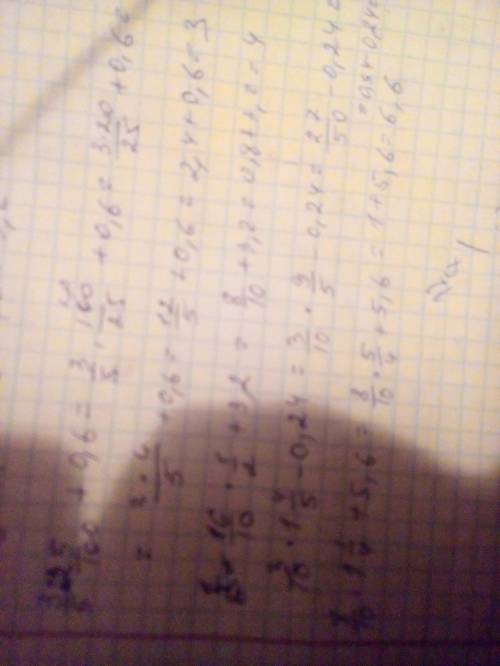 + 0,6 = \frac{3}{5} \cdot \frac{100}{25} + 0,6 = \frac{3 \cdot 20}{25} + 0,6 =
= \frac{3 \cdot 4}{5} + 0,6 = \frac{12}{5} + 0,6 = 2,4 + 0,6 = 3
\frac{16}{10} \cdot \frac{1}{2} + 3,2 = \frac{8}{10} + 3,2 = 0,8 + 3,2 = 4
\frac{3}{10} \cdot 1\frac{4}{5} - 0,24 = \frac{3}{10} \cdot \frac{9}{5} - 0,24 = \frac{27}{50} - 0,24 =
\frac{8}{10} \cdot 1\frac{1}{4} + 5,6 = \frac{8}{10} \cdot \frac{5}{4} + 5,6 = 1 + 5,6 = 6,6